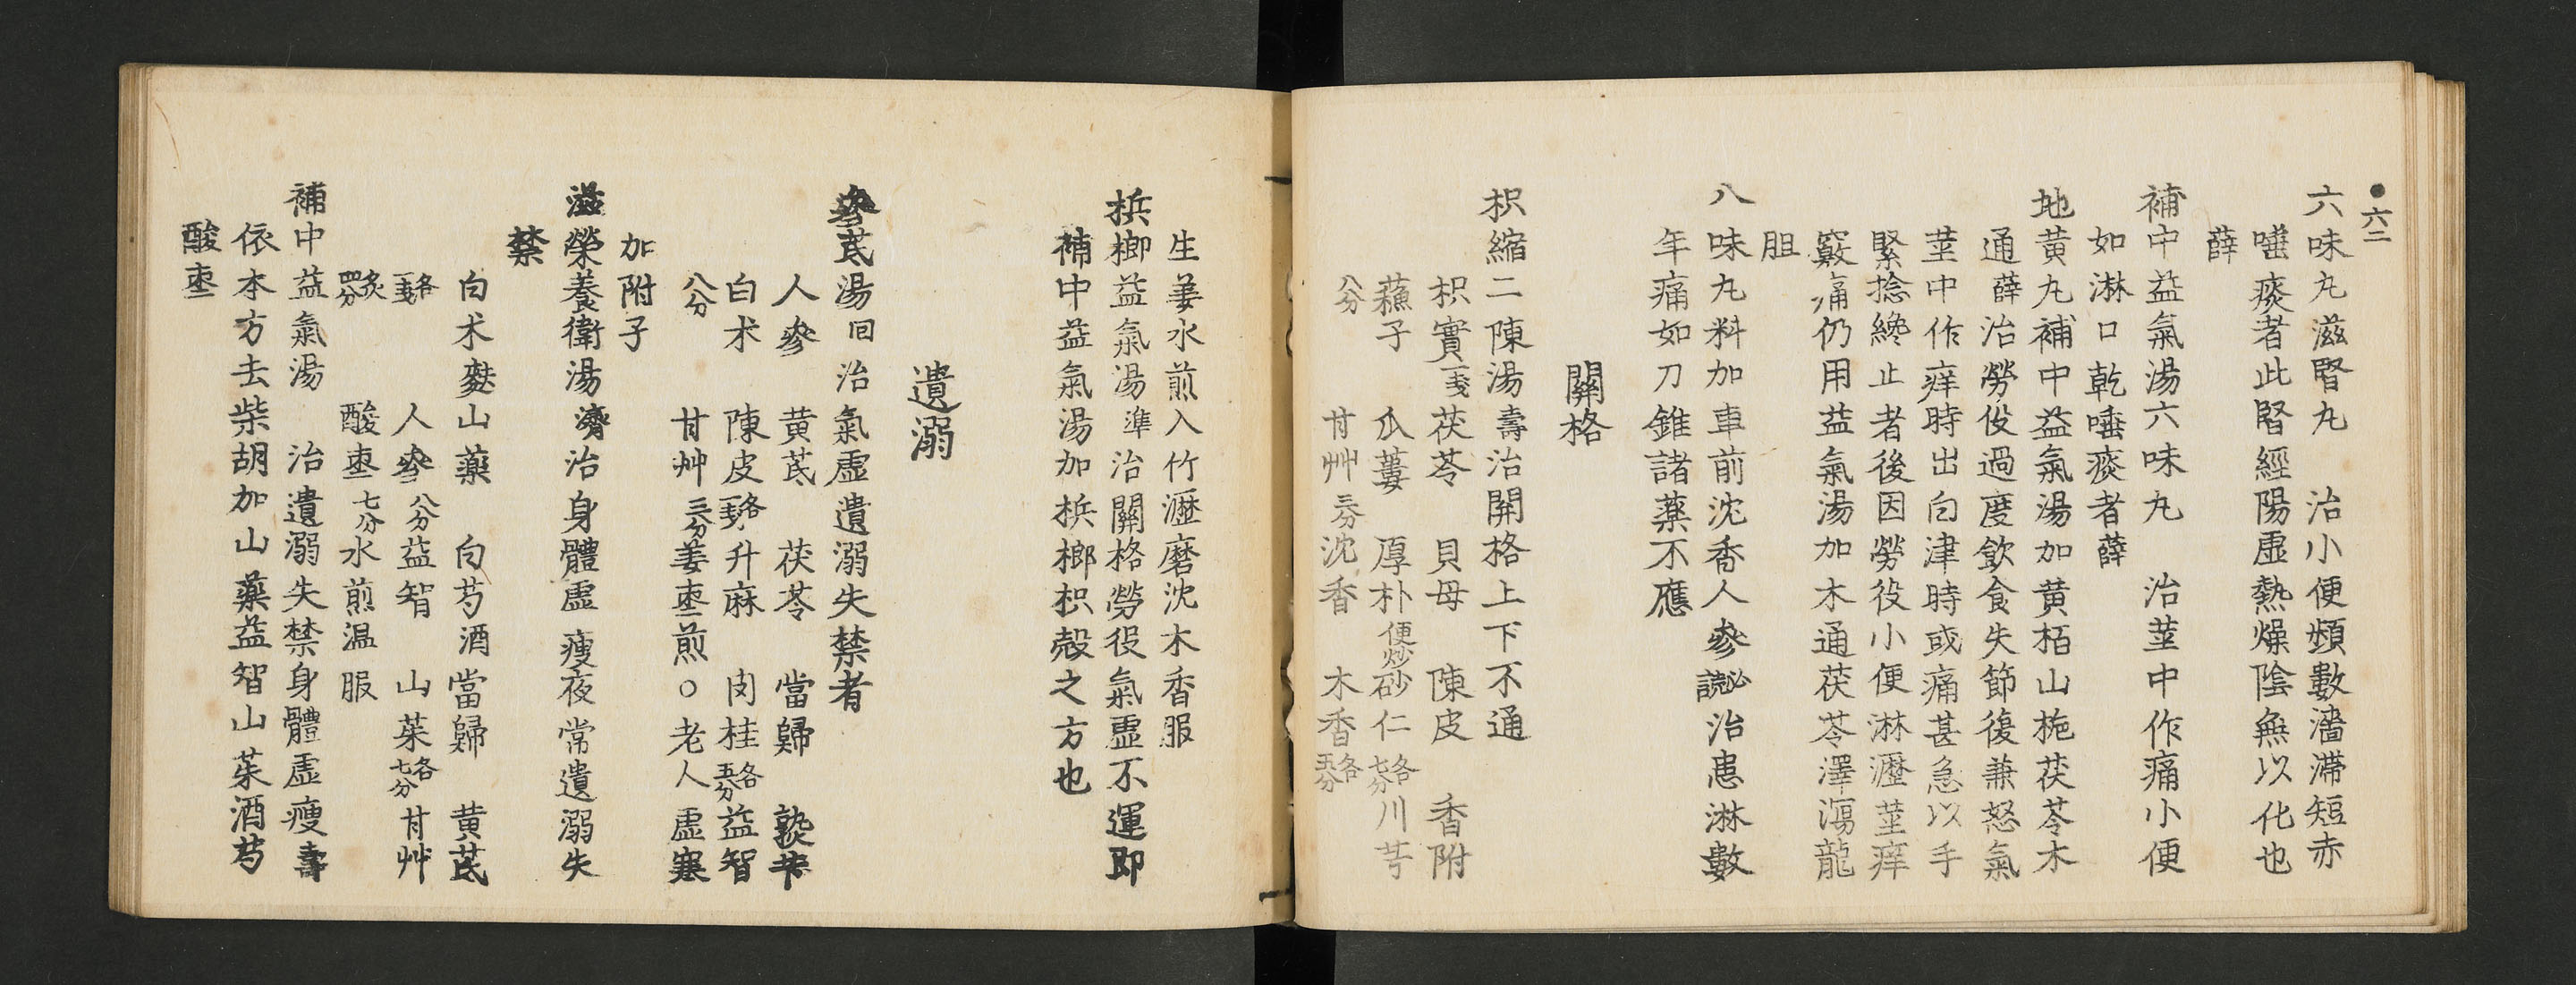 ●六二
六味丸滋腎丸　治小便頻數濇滯短赤
唾痰者此腎經陽虛熱燥陰無以化也
薛
補中益氣湯六味丸　治莖中作痛小便
如淋口乾唾痰者薛
地黃丸補中益氣湯加黃栢山梔茯苓木
通薛治勞役過度飮食失節復兼怒氣
莖中作痒時出白津時或痛甚急以手
緊捻纔止者後因勞役小便淋瀝莖痒
竅痛仍用益氣湯加木通茯苓澤瀉龍
胆
八味丸料加車前沈香人參 治患淋數
年痛如刀錐諸藥不應
關格
枳縮二陳湯壽治關格上下不通
枳實一戔茯苓　貝母　陳皮　香附
蘓子　瓜蔞　厚朴便炒砂仁各七分川芎
八分　甘艸三分沈香　木香各五分
生姜水煎入竹瀝磨沈木香服
梹榔益氣湯準治關格勞役氣虛不運即
補中益氣湯加梹榔枳殼之方也
遺溺
參芪湯回治氣虛遺溺失禁者
人參　黃芪　茯苓　當歸　熟芐
白朮　陳皮各一戔升麻　肉桂各五分益智
八分　甘艸三分姜枣煎○老人虛寒
加附子
滋榮養衛湯濟治身體虛瘦夜常遺溺失
禁
白朮麩山藥　白芍酒當歸　黃芪
各一戔　人參八分益智　山茱各七分甘艸
炙四分　酸枣七分水煎温服
補中益氣湯　治遺溺失禁身體虛瘦壽
依本方去柴胡加山藥益智山茱酒芍
酸枣